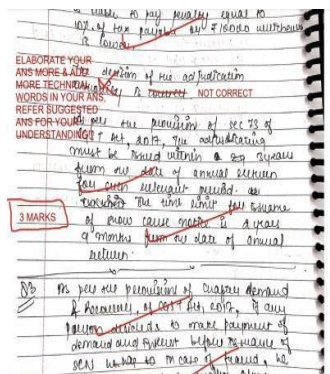 liable to pay penalty equal to
10% of tax payable or ₹ 10000 whichever
is lower
ELABORATE YOUR
ANS MORE & ADD
MORE TECHNICAL
WORDS IN YOUR ANS,
REFER SUGGESTED
ANS FOR YOUR
UNDERSTANDING
decision of the adjudication
is correct NOT CORRECT
As per the provision of sec 73 of
Act, 2017, The adjudicating
must be issued within 3 years
from the date of annual return
for such relevant period.
The time limit for issuance
3 MARKS
of show cause notice is 2 years
9 months from the date of annual
return.
Q3 As per the provisions of demand
& Recovery, of CGST Act, 2017, if any
person decides to make payment of
demand and interest before issuance of
SCN in case of fraud, he